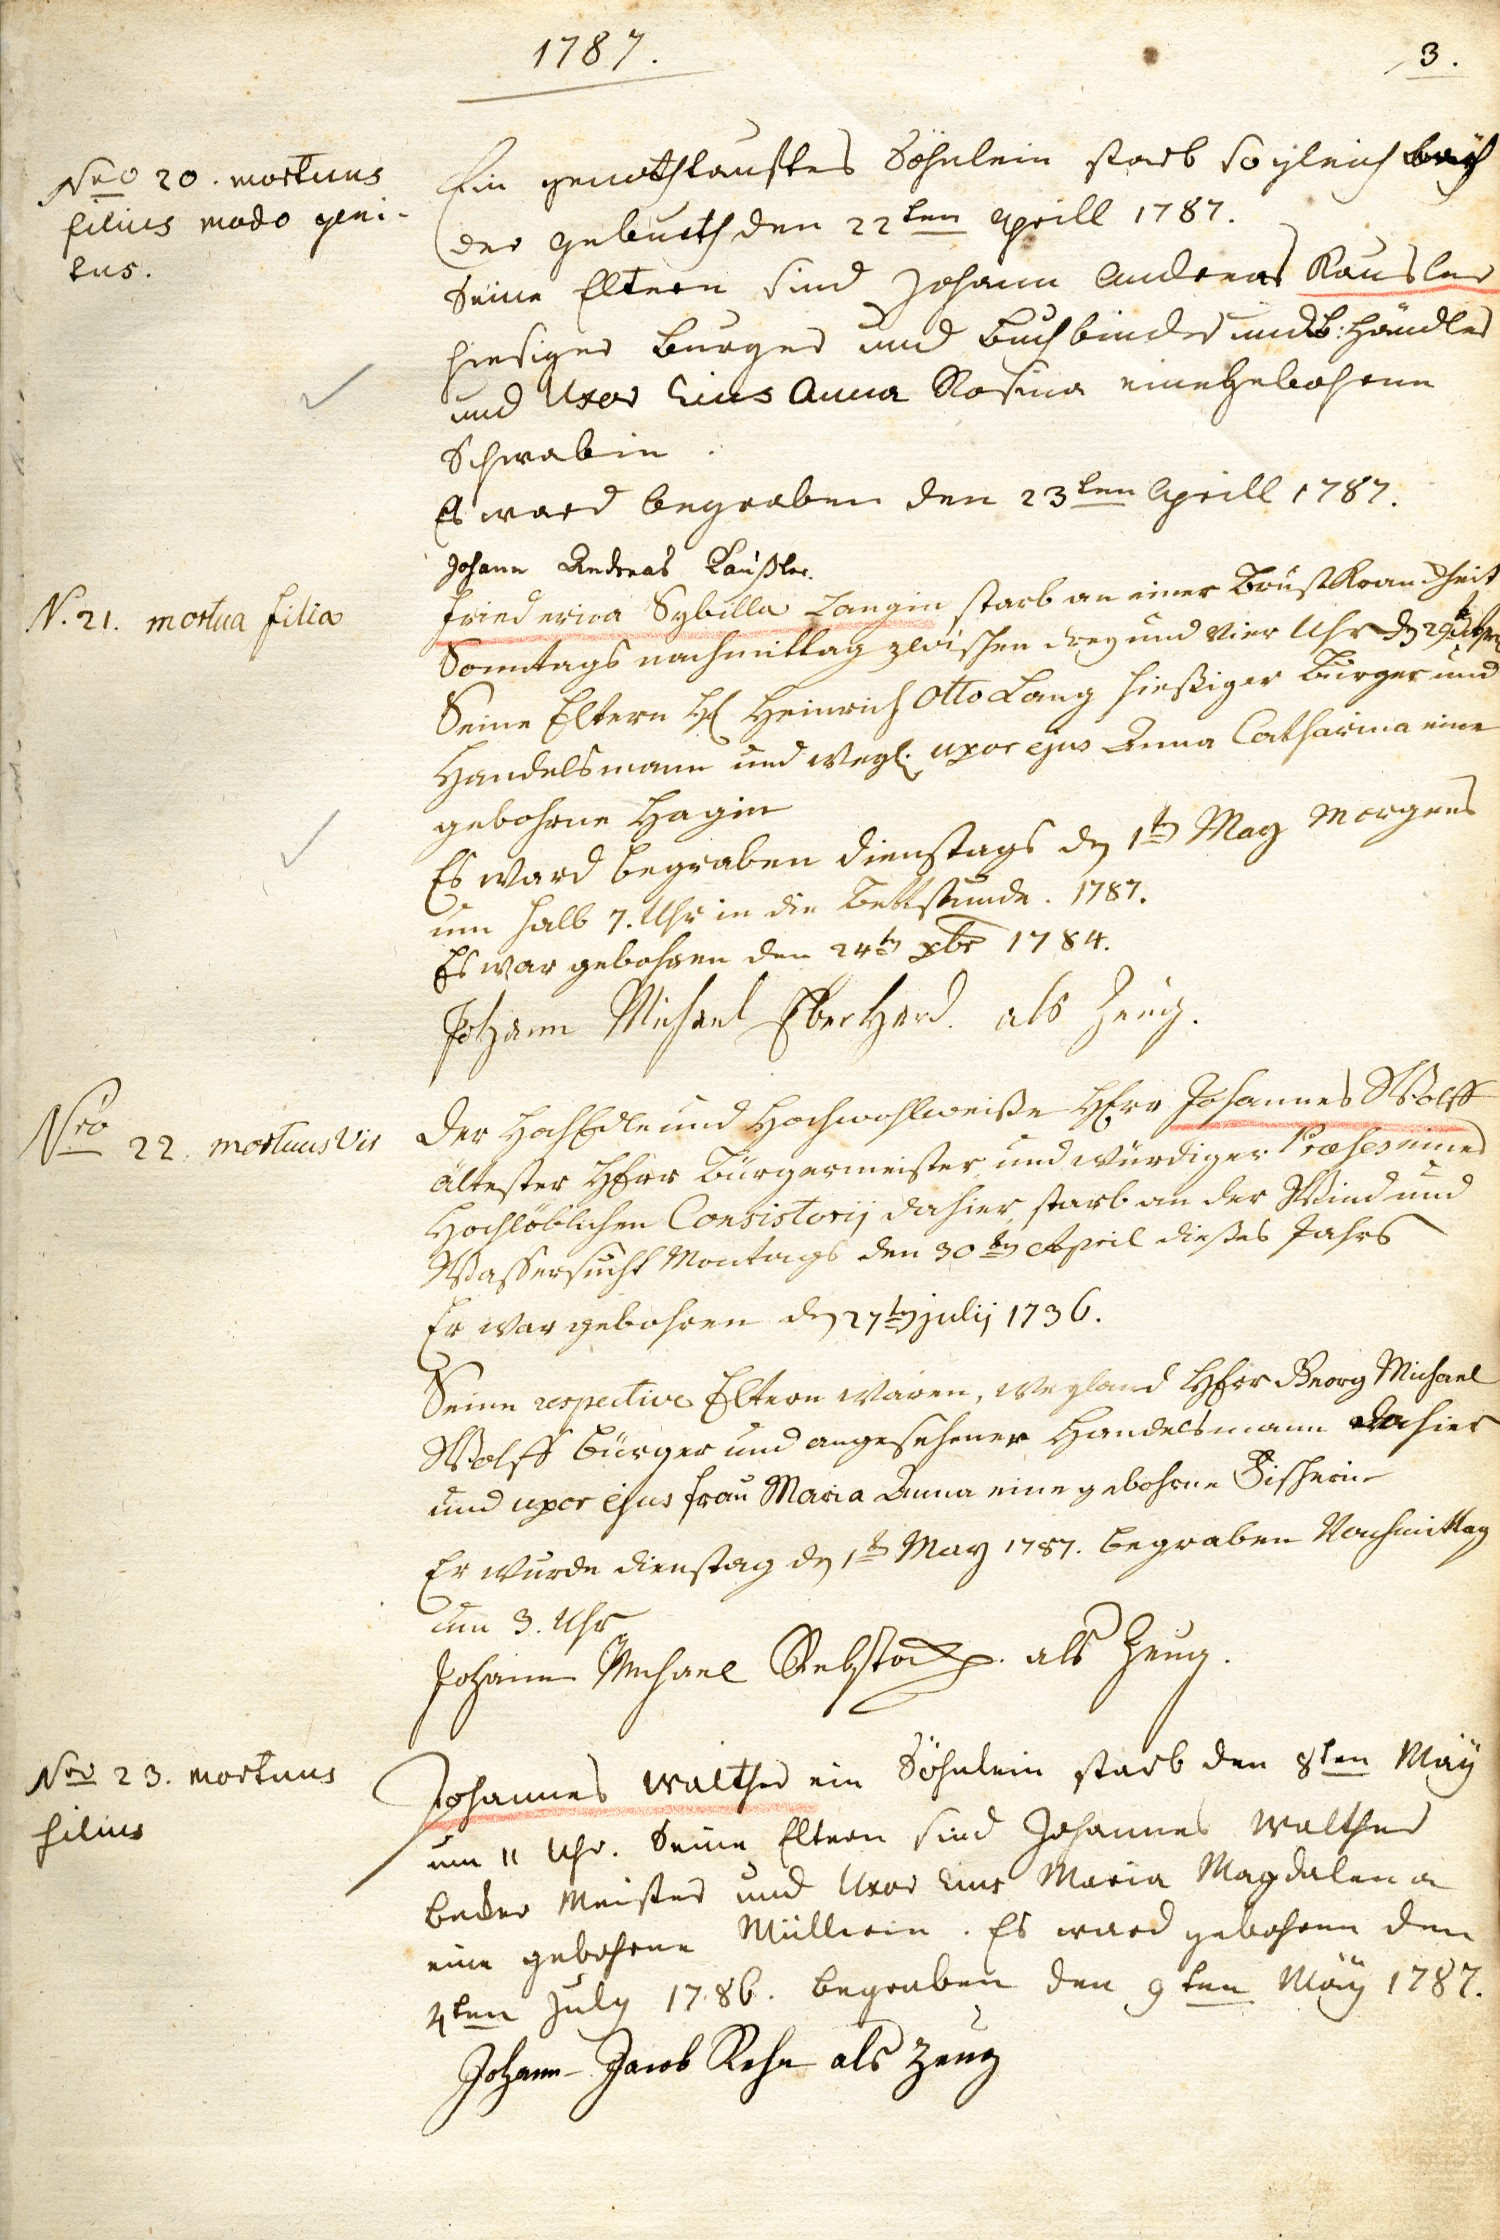 1787.
3.
Nro 20. mortuus
filius modo geni-
tus.
Ein genothtauftes Söhnlein starb sogleich bey
der geburth den 22ten Aprill 1787.
Seine Eltern sind Johann Andreas Kausler
hiesiger Burger und Buchbinder und b: händler
und Uxor Eius Anna Rosina eine gebohrne
Schwabin.
Es ward begraben den 23ten Aprill 1787.
Johann Andreas Kaußler.
N. 21. mortua filia
Friederica Sybilla Langin starb an einer Brustkrankheit
Sonntags nachmittag zwischen drey und vier Uhr d 29ten
Seine Eltern H Heinrich Otto Lang hießiger Bürger und
Handelsmann und weyl. uxor ejus Anna Catharina eine
gebohrne Hagin
Es ward begraben dienstags d 1ten May Morgens
um halb 7. Uhr in die Bettstunde. 1787.
Es war gebohren den 24ten xbr 1784.
Johann Michael Eberhard. als Zeug.
Nro 22. mortuus Vir
Der HochEdle und Hochwohlweiße Herr Johannes Wolff
ältester Herr Bürgermeister und würdiger Præses eines
Hochlöblichen Consistorij dahier starb an der Wind und
Wassersucht Montags den 30ten April dießes Jahrs
Er war gebohren d 27ten julij 1736.
Seine respective Eltern waren, weyland Herr Georg Michael
Wolff bürger und angesehener Handelsmann dahier
und uxor ejus frau Maria Anna eine gebohrne Fischerin
Er wurde dienstag d 1t May 1787. begraben Nachmittag
um 3. Uhr
Johann Michael Rebstock. als Zeug.
Nro 23. mortuus
filius
Johannes Walther ein Söhnlein starb den 8ten Maÿ
um 11 Uhr. Seine Eltern sind Johannes Walther
becker Meister und Uxor Eius Maria Magdalena
eine gebohrne Müllerin. Es ward gebohren den
4ten July 1786. begraben den 9ten Maÿ 1787.
Johann Jacob Rehn als Zeug